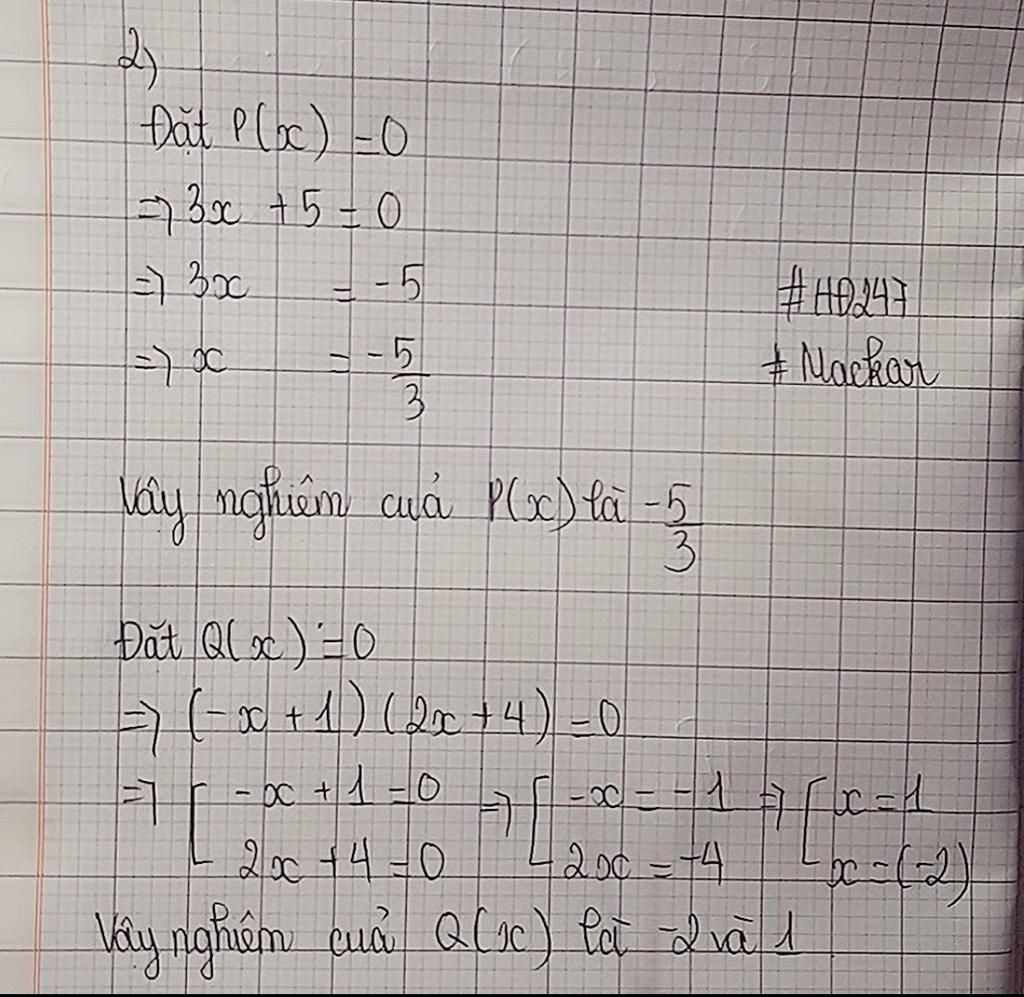 2)
Đặt P(x) = 0
=> 3x + 5 = 0
=> 3x = -5
#HĐ247
=> x = -5/3
# Mackar
Vậy nghiệm của P(x) là -5/3
Đặt Q(x) = 0
=> (-x + 1) (2x + 4) = 0
=> [ -x + 1 = 0 => [ -x = -1 => [ x = 1
2x + 4 = 0 2x = -4 x = (-2)
Vậy nghiệm của Q(x) là -2 và 1